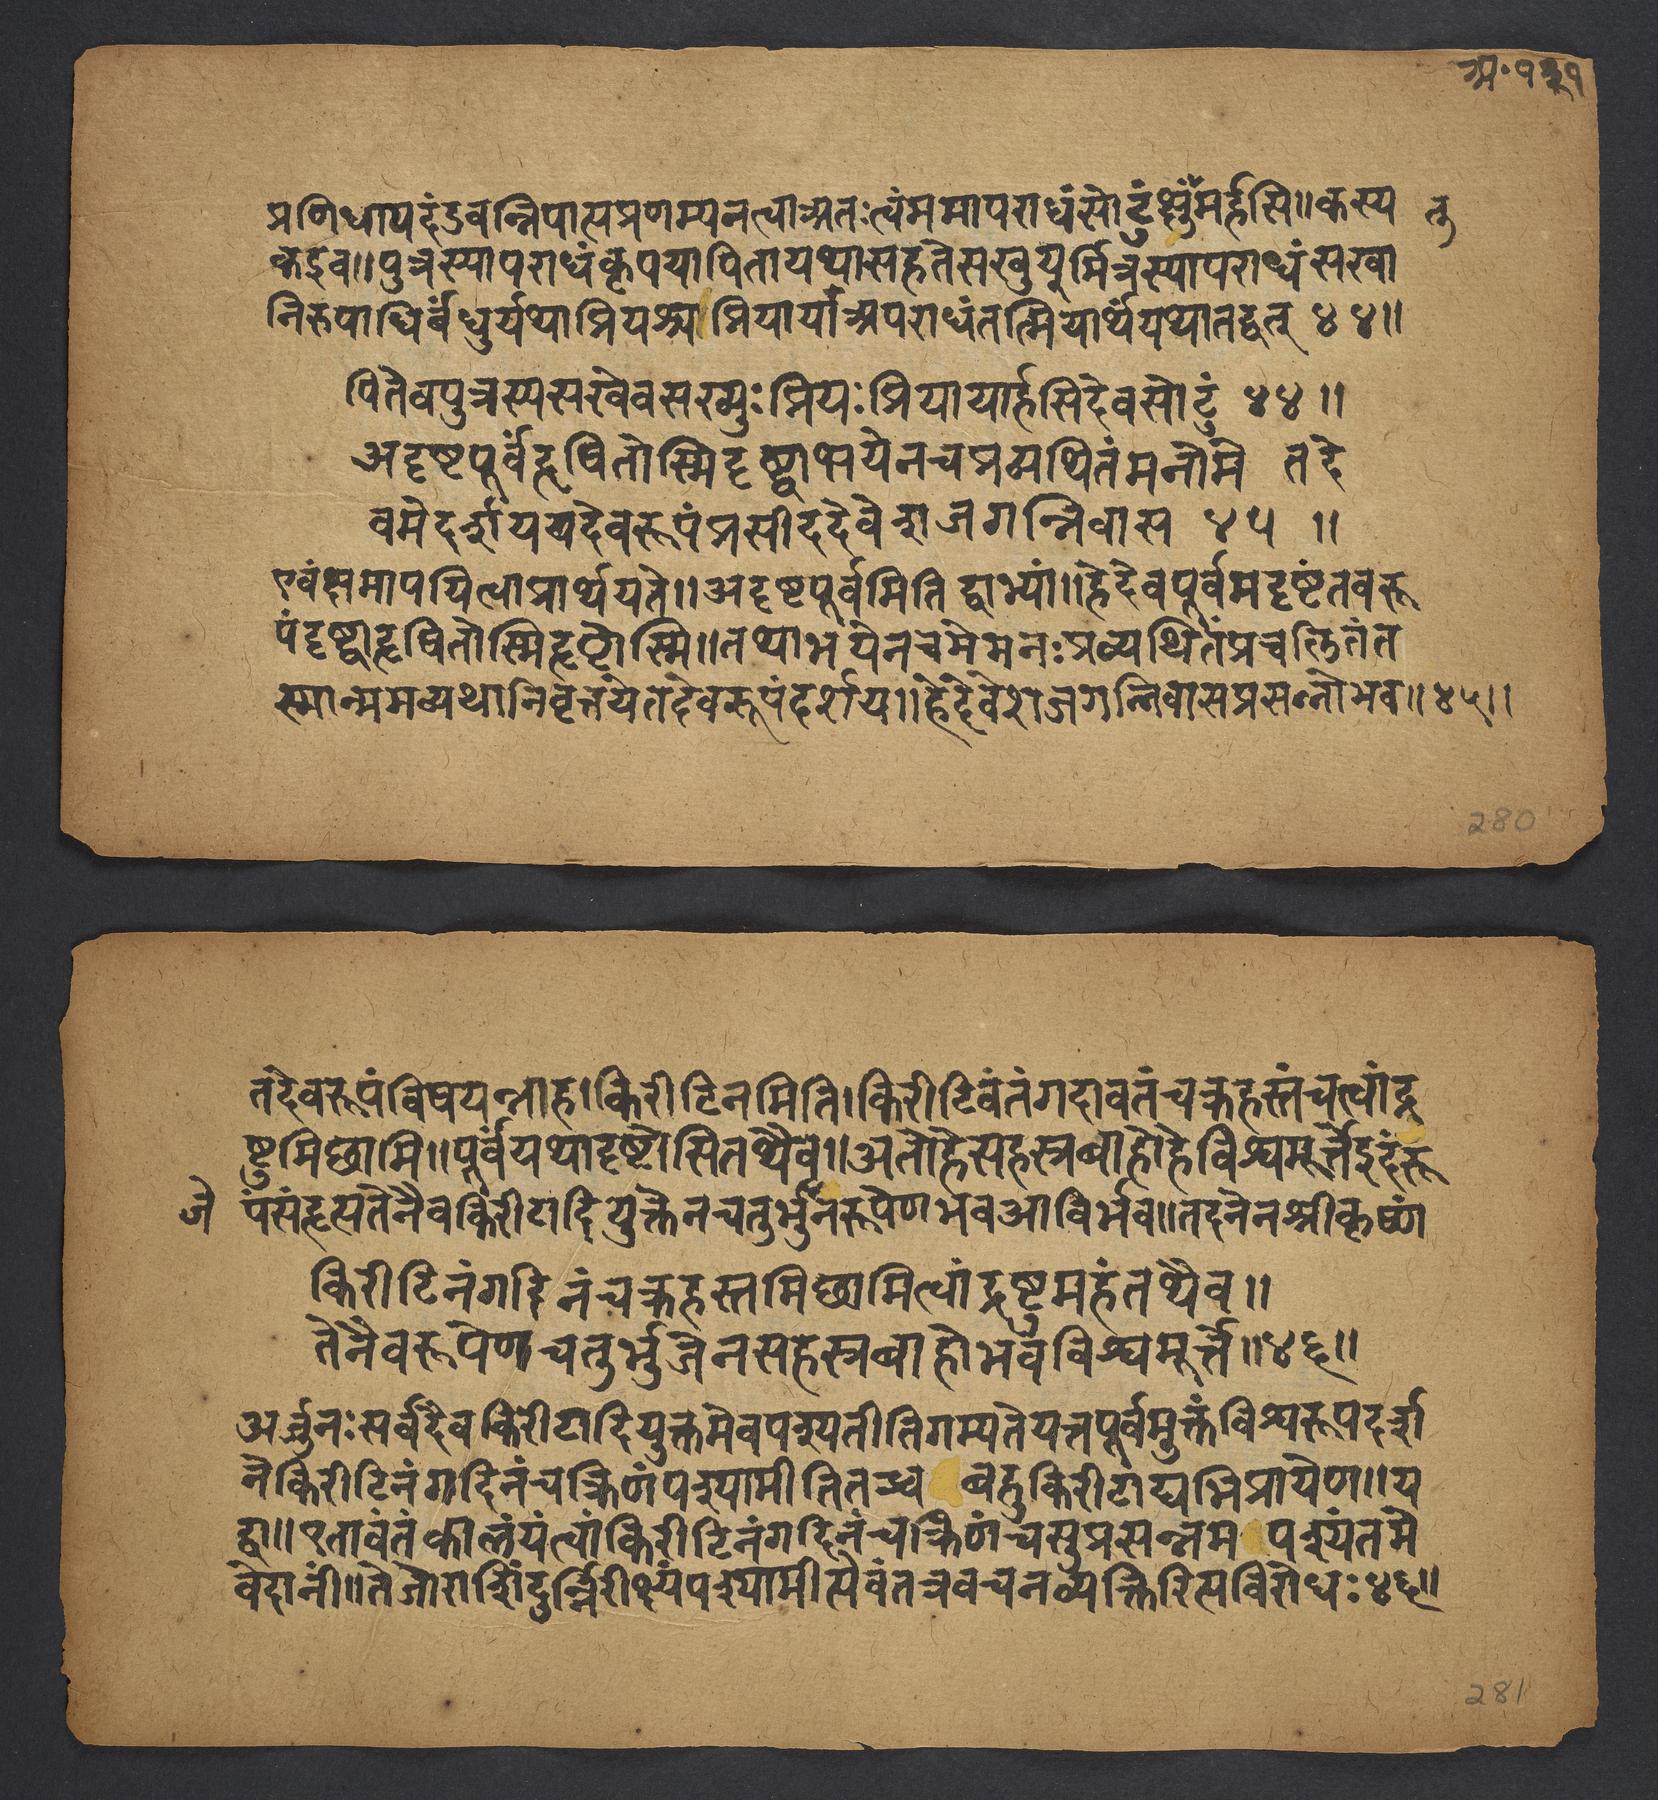 अ॰११
प्रणिधायदंडवन्निपात्यप्रणम्यनत्वाअतःत्वंममापराधंसोढुंक्षंमर्हसि॥कस्य तु
कइव॥पुत्रस्यापराधंकृपयापितायथासहतेसख्युर्मित्रस्यापराधंसखा
निरुपाधिर्बंधुर्यथाप्रियश्चप्रियायाअपराधंतत्प्रियार्थंयथातद्वत् ४४॥
पितेवपुत्रस्यसखेवसख्युःप्रियःप्रियायार्हसिदेवसोढुं ४४॥
अदृष्टपूर्वंहृषितोस्मिदृष्ट्वाभयेनचप्रव्यथितंमनोमे तदे
वमेदर्शययदेवरूपंप्रसीददेवेशजगन्निवास ४५ ॥
एवंक्षमापयित्वाप्रार्थयते॥अदृष्टपूर्वमिति द्वाभ्यां॥हेदेवपूर्वमदृष्टंतवरू
पंदृष्ट्वाहृषितोस्मिहृष्टोस्मि॥तथाभयेनचमेमनःप्रव्यथितंप्रचलितंत
स्मान्ममव्यथानिवृत्तयेतदेवरूपंदर्शय॥हेदेवेशजगन्निवासप्रसन्नोभव॥४५॥
280
तदेवरूपंविषयन्नाह।किरीटिनमिति।किरीटिवंतंगदावतंचक्रहस्तंचत्वांद्र
ष्टुमिछामि॥पूर्वंयथादृष्टोसितथैव॥अतोहेसहस्रबाहोहेविश्वमूर्त्तेइदंरू
जे पंसंहृत्यतेनैवकिरीटादियुक्तेनचतुर्भुनरूपेणभवआविर्भव॥तदनेनश्रीकृष्णं
किरीटिनंगदिनंचक्रहस्तमिछामित्वांद्रष्टुमहंतथैव॥
तेनैवरूपेणचतुर्भुजेनसहस्रबाहोभवविश्वमूर्त्ते॥४६॥
अर्ज्जुनःसर्वदैवकिरीटादियुक्तमेवपश्यतीतिगम्यतेयत्तपूर्वमुक्तंविश्वरूपदर्श
नेकिरीटिनंगदिनंचक्रिणंपश्यामीतितच्च बहुकिरीटाद्यभिप्रायेण॥य
द्वा॥एतावंतंकालंयंत्वांकिरीटिनंगदिनंचक्रिणंचसुप्रसन्नम पश्यंतमे
वेदानीं॥तेजोराशिंदुर्न्निरीक्ष्यंपश्यामीत्येवंतत्रवचनव्यक्तिरित्यविरोधः४६॥
281